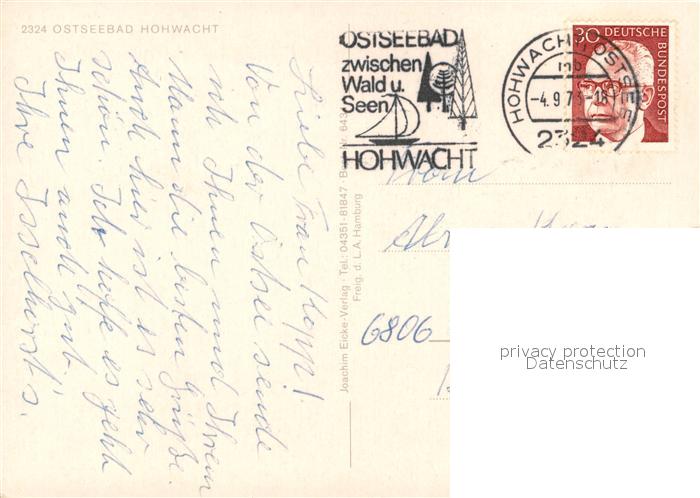 2324 OSTSEEBAD HOHWACHT
OSTSEEBAD
zwischen
Wald u.
Seen
HOHWACHT
HOHWACHT (OSTSEE)
mb
-4.9.73-18
2324
30 DEUTSCHE
BUNDESPOST
Liebe Frau Kopp!
Von der Ostsee sende
ich Ihnen und Ihrem
Mann die besten Grüße.
Auch hier ist es sehr
schön. Ich hoffe es geht
Ihnen auch gut.
Ihre Isselhorst's.
Joachim Eicke-Verlag · Tel.: 04351-81847
Freig. d. L.A. Hamburg
6806
privacy protection
Datenschutz